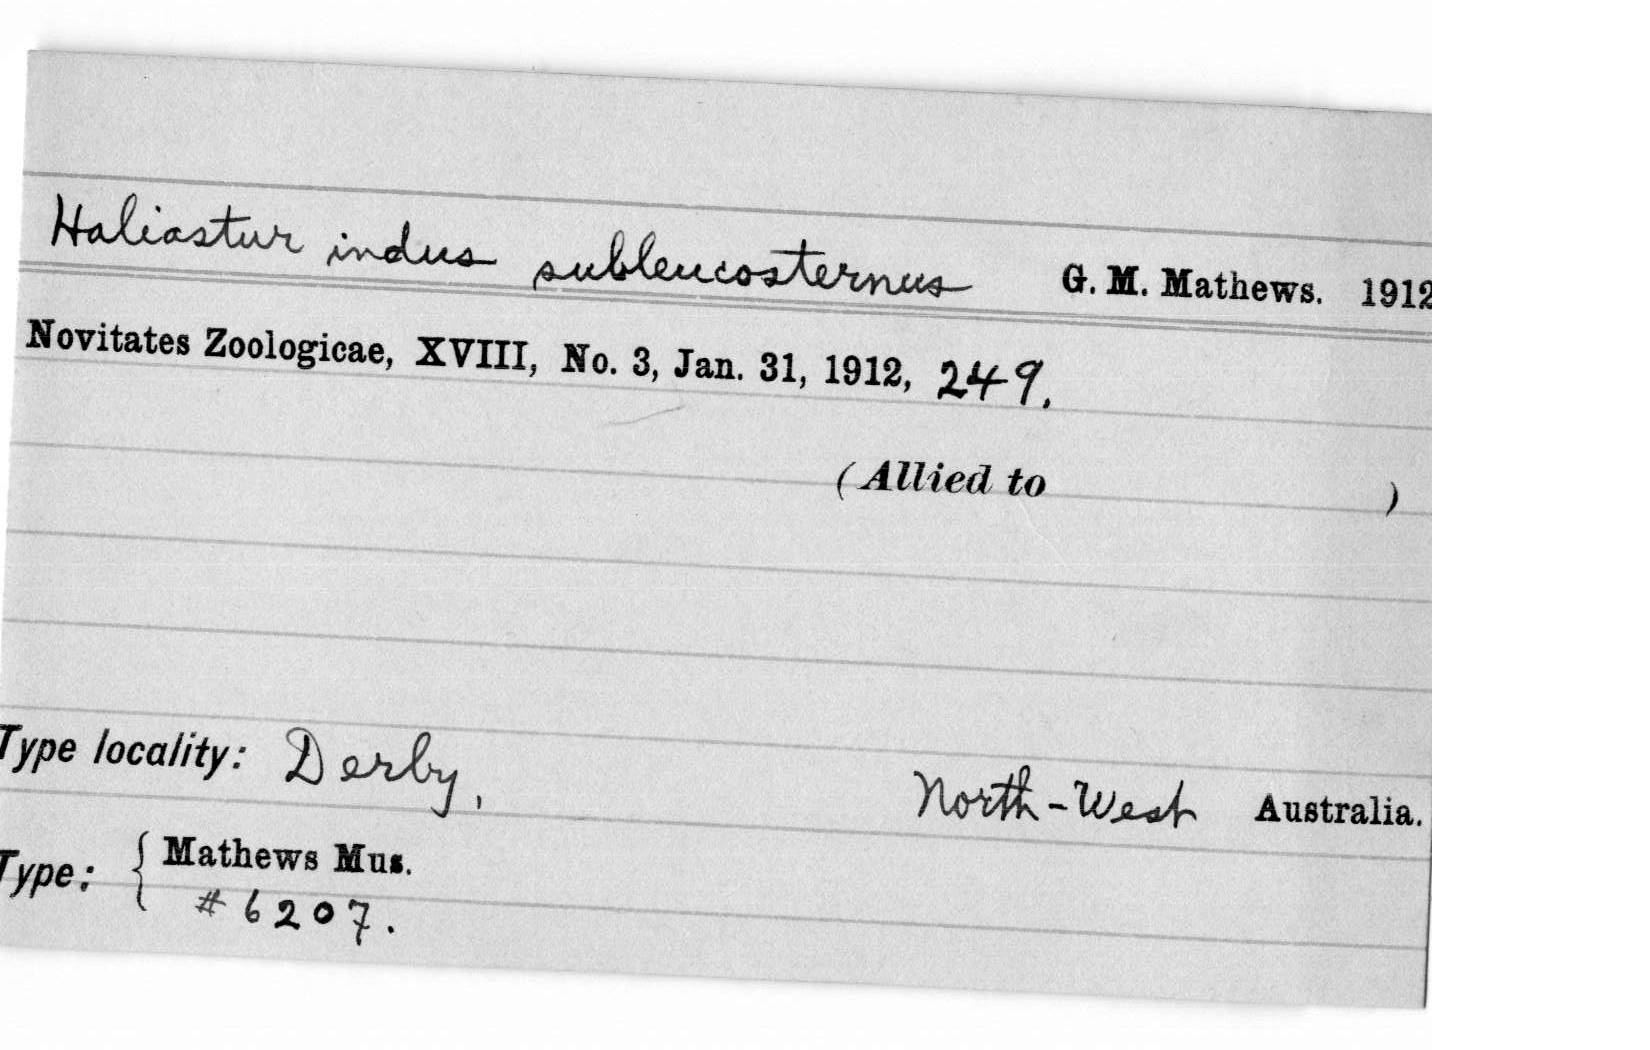 Haliastur indus subleucosternus G. M. Mathews. 1912
Novitates Zoologicae, XVIII, No. 3, Jan. 31, 1912, 249.
(Allied to )
Type locality: Derby, North-West Australia.
Type: { Mathews Mus.
#6207.